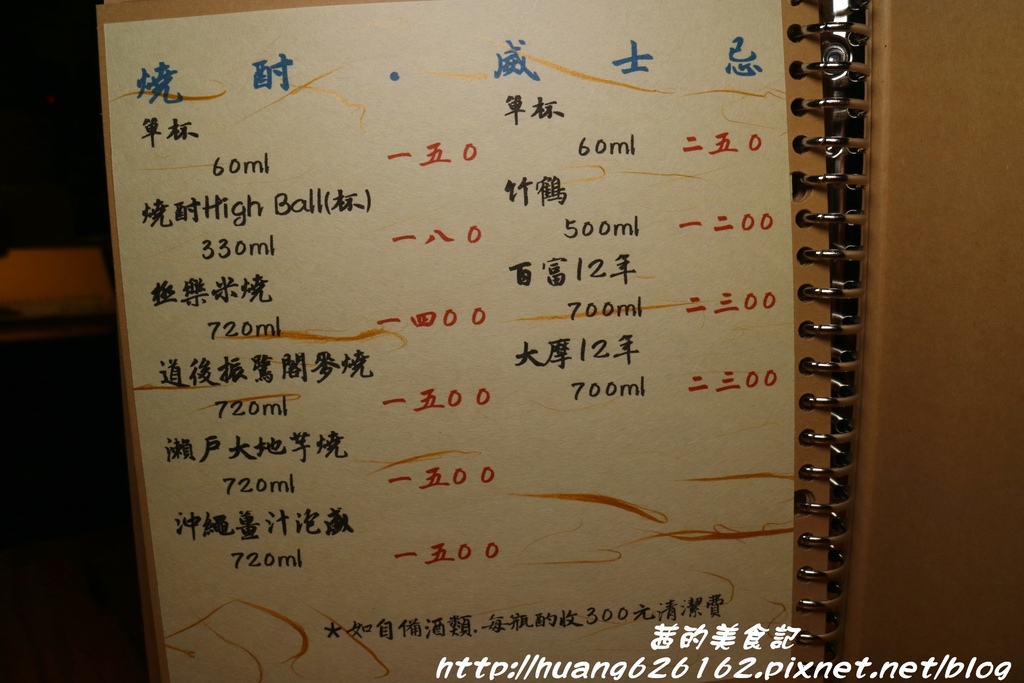 燒酎・威士忌
單杯
60ml 一五0
燒酎High Ball(杯)
330ml 一八0
極樂米燒
720ml 一四00
道後振鷺閣麥燒
720ml 一五00
瀨戶大地芋燒
720ml 一五00
沖繩薑汁泡盛
720ml 一五00
單杯
60ml 二五0
竹鶴
500ml 一二00
百富12年
700ml 二三00
大摩12年
700ml 二三00
*如自備酒類.每瓶酌收300元清潔費
茜的美食記
http://huang626162.pixnet.net/blog